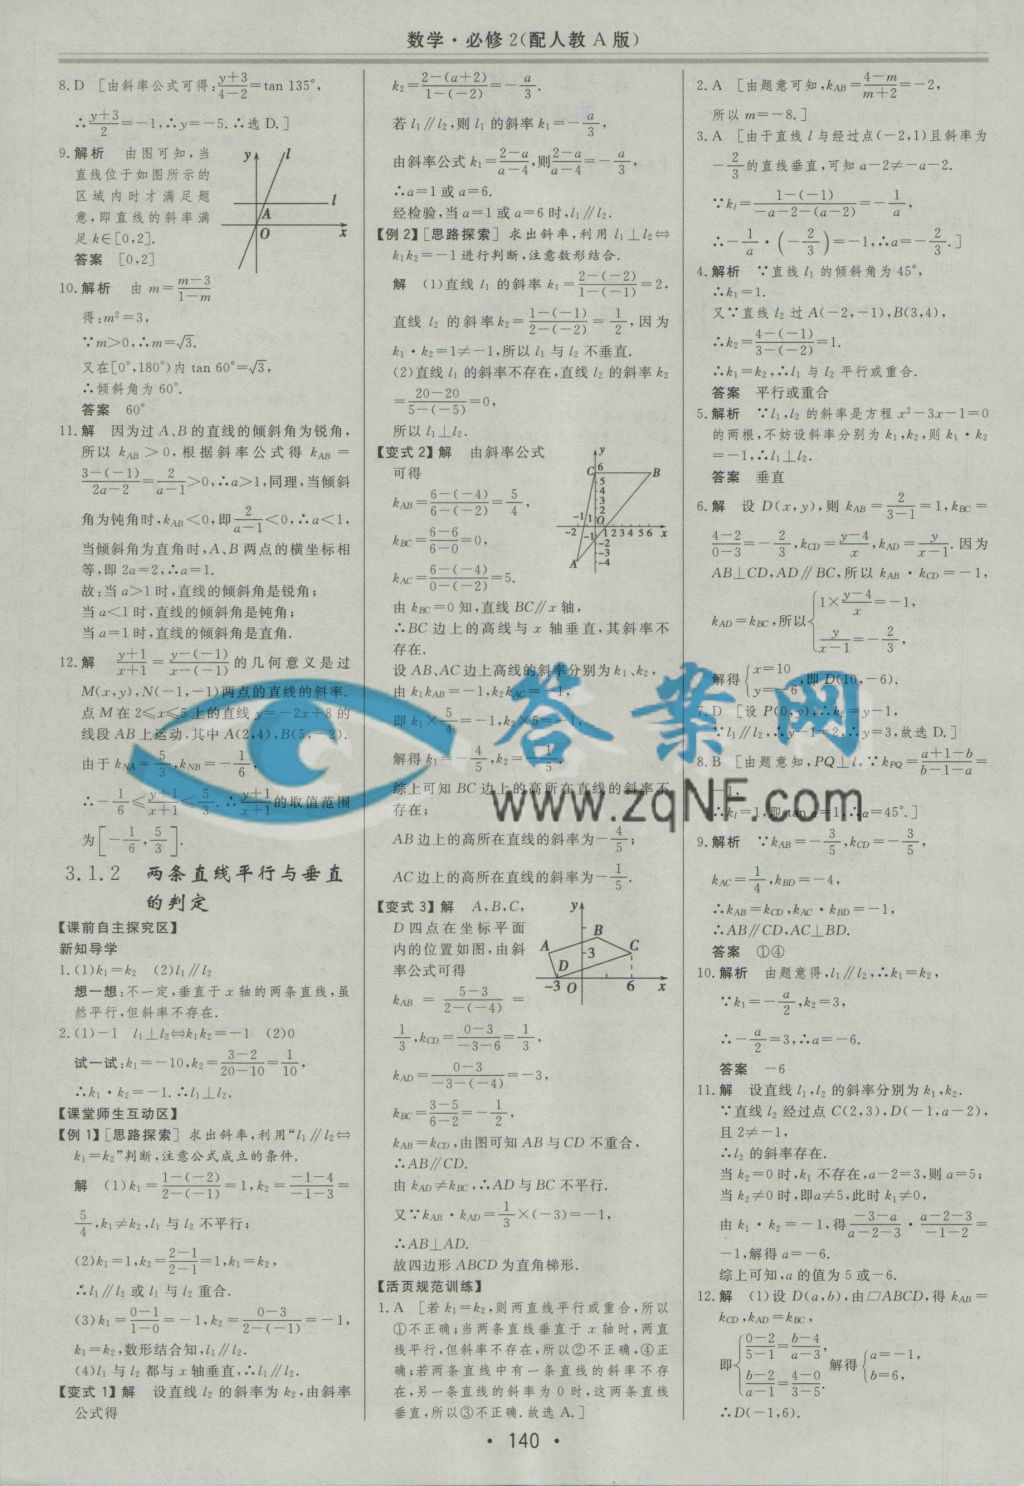 数学·必修2(配人教A版)
8.D [由斜率公式可得:\frac{y+3}{4-2}=tan 135°,
∴\frac{y+3}{2}=-1,∴y=-5.∴选D.]
9.解析 由图可知,当
直线位于如图所示的
区域内时才满足题
意,即直线的斜率满
足k∈[0,2].
答案 [0,2]
y
l
l
A
O
x
10.解析 由m=\frac{m-3}{1-m}
得:m²=3,
∵m>0,∴m=√3.
又在[0°,180°)内tan 60°=√3,
∴倾斜角为60°.
答案 60°
11.解 因为过A、B的直线的倾斜角为锐角,
所以k_{AB}>0,根据斜率公式得k_{AB}=
\frac{3-(-1)}{2a-2}=\frac{2}{a-1}>0,∴a>1,同理,当倾斜
角为钝角时,k_{AB}<0,即\frac{2}{a-1}<0,∴a<1,
当倾斜角为直角时,A、B两点的横坐标相
等,即2a=2,∴a=1.
故:当a>1时,直线的倾斜角是锐角;
当a<1时,直线的倾斜角是钝角;
当a=1时,直线的倾斜角是直角.
12.解 \frac{y+1}{x+1}=\frac{y-(-1)}{x-(-1)}的几何意义是过
M(x,y),N(-1,-1)两点的直线的斜率.
点M在2≤x≤5上的直线y=-2x+8的
线段AB上运动,其中A(2,4),B(5,-2).
由于k_{NA}=\frac{5}{3},k_{NB}=-\frac{1}{6},
∴-\frac{1}{6}≤\frac{y+1}{x+1}≤\frac{5}{3}.∴\frac{y+1}{x+1}的取值范围
为[-\frac{1}{6},\frac{5}{3}].
3.1.2 两条直线平行与垂直
的判定
【课前自主探究区】
新知导学
1.(1)k₁=k₂ (2)l₁∥l₂
想一想:不一定,垂直于x轴的两条直线,虽
然平行,但斜率不存在.
2.(1)-1 l₁⊥l₂⇔k₁k₂=-1 (2)0
试一试:k₁=-10,k₂=\frac{3-2}{20-10}=\frac{1}{10},
∴k₁·k₂=-1.∴l₁⊥l₂.
【课堂师生互动区】
【例1】[思路探索] 求出斜率,利用“l₁∥l₂⇔
k₁=k₂”判断,注意公式成立的条件.
解 (1)k₁=\frac{1-(-2)}{2-(-1)}=1,k₂=\frac{-1-4}{-1-3}=
\frac{5}{4},k₁≠k₂,l₁与l₂不平行;
(2)k₁=1,k₂=\frac{2-1}{2-1}=1,k₁=k₂,
∴l₁∥l₂或l₁与l₂重合.
(3)k₁=\frac{0-1}{1-0}=-1,k₂=\frac{0-3}{2-(-1)}=-1,
k₁=k₂,数形结合知,l₁∥l₂.
(4)l₁与l₂都与x轴垂直,∴l₁∥l₂.
【变式1】解 设直线l₂的斜率为k₂,由斜率
公式得
k₂=\frac{2-(a+2)}{1-(-2)}=-\frac{a}{3}.
若l₁∥l₂,则l₁的斜率k₁=-\frac{a}{3},
由斜率公式k₁=\frac{2-a}{a-4},则\frac{2-a}{a-4}=-\frac{a}{3},
∴a=1或a=6.
经检验,当a=1或a=6时,l₁∥l₂.
【例2】[思路探索] 求出斜率,利用l₁⊥l₂⇔
k₁k₂=-1进行判断,注意数形结合.
解 (1)直线l₁的斜率k₁=\frac{2-(-2)}{1-(-1)}=2,
直线l₂的斜率k₂=\frac{1-(-1)}{2-(-2)}=\frac{1}{2},因为
k₁·k₂=1≠-1,所以l₁与l₂不垂直.
(2)直线l₁的斜率不存在,直线l₂的斜率k₂
=\frac{20-20}{5-(-5)}=0,
所以l₁⊥l₂.
【变式2】解 由斜率公式
可得
k_{AB}=\frac{6-(-4)}{6-(-2)}=\frac{5}{4},
k_{BC}=\frac{6-6}{6-0}=0,
k_{AC}=\frac{6-(-4)}{0-(-2)}=5.
y
C 6 B
5
4
3
2
-1 1 O
-2 -1 1 2 3 4 5 6 x
-2
-3
A -4
由k_{BC}=0知,直线BC∥x轴,
∴BC边上的高线与x轴垂直,其斜率不
存在.
设AB、AC边上高线的斜率分别为k₁、k₂,
由k₁k_{AB}=-1,k₂k_{AC}=-1,
即k₁×\frac{5}{4}=-1,k₂×5=-1,
解得k₁=-\frac{4}{5},k₂=-\frac{1}{5}.
综上可知BC边上的高所在直线的斜率不
存在;
AB边上的高所在直线的斜率为-\frac{4}{5};
AC边上的高所在直线的斜率为-\frac{1}{5}.
【变式3】解 A,B,C,
D四点在坐标平面
内的位置如图,由斜
率公式可得
y
B
A 3 C
D
-3 O 6 x
k_{AB}=\frac{5-3}{2-(-4)}=
\frac{1}{3},k_{CD}=\frac{0-3}{-3-6}=\frac{1}{3},
k_{AD}=\frac{0-3}{-3-(-4)}=-3,
k_{BC}=\frac{3-5}{6-2}=-\frac{1}{2},
k_{AB}=k_{CD},由图可知AB与CD不重合,
∴AB∥CD.
由k_{AD}≠k_{BC},∴AD与BC不平行.
又∵k_{AB}·k_{AD}=\frac{1}{3}×(-3)=-1,
∴AB⊥AD.
故四边形ABCD为直角梯形.
【活页规范训练】
1.A [若k₁=k₂,则两直线平行或重合,所以
①不正确;当两条直线垂直于x轴时,两直
线平行,但斜率不存在,所以②不正确,④正
确;若两条直线中有一条直线的斜率不存
在,另一条直线的斜率为0时,这两条直线
垂直,所以③不正确.故选A.]
2.A [由题意可知,k_{AB}=\frac{4-m}{m+2}=-2,
所以m=-8.]
3.A [由于直线l与经过点(-2,1)且斜率为
-\frac{2}{3}的直线垂直,可知a-2≠-a-2.
∵k_l=\frac{1-(-1)}{-a-2-(a-2)}=-\frac{1}{a},
∴-\frac{1}{a}·(-\frac{2}{3})=-1,∴a=-\frac{2}{3}.]
4.解析 ∵直线l₁的倾斜角为45°,
∴k₁=1.
又∵直线l₂过A(-2,-1),B(3,4),
∴k₂=\frac{4-(-1)}{3-(-2)}=1.
∴k₁=k₂,∴l₁与l₂平行或重合.
答案 平行或重合
5.解析 ∵l₁,l₂的斜率是方程x²-3x-1=0
的两根,不妨设斜率分别为k₁,k₂,则k₁·k₂
=-1,∴l₁⊥l₂.
答案 垂直
6.解 设D(x,y),则k_{AB}=\frac{2}{3-1}=1,k_{BC}=
\frac{4-2}{0-3}=-\frac{2}{3},k_{CD}=\frac{y-4}{x},k_{AD}=\frac{y}{x-1}.因为
AB⊥CD,AD∥BC,所以k_{AB}·k_{CD}=-1,
k_{AD}=k_{BC},所以{1×\frac{y-4}{x}=-1,
\frac{y}{x-1}=-\frac{2}{3},
解得{x=10
y=-6,即D(10,-6).
7.D [设P(0,y),∴k₂=y-1,
∵l₁∥l₂,∴y-1=2,∴y=3,故选D.]
8.B [由题意知,PQ⊥l,∵k_{PQ}=\frac{a+1-b}{b-1-a}=
-1,
∴k_l=1,即tan α=1,∴α=45°.]
9.解析 ∵k_{AB}=-\frac{3}{5},k_{CD}=-\frac{3}{5},
k_{AC}=\frac{1}{4},k_{BD}=-4,
∴k_{AB}=k_{CD},k_{AC}·k_{BD}=-1,
∴AB∥CD,AC⊥BD.
答案 ①④
10.解析 由题意得,l₁∥l₂,∴k₁=k₂,
∵k₁=-\frac{a}{2},k₂=3,
∴-\frac{a}{2}=3,∴a=-6.
答案 -6
11.解 设直线l₁,l₂的斜率分别为k₁,k₂.
∵直线l₂经过点C(2,3),D(-1,a-2),
且2≠-1,
∴l₂的斜率存在.
当k₂=0时,k₁不存在,a-2=3,则a=5;
当k₂≠0时,即a≠5,此时k₁≠0,
由k₁·k₂=-1,得\frac{-3-a}{a-2-3}·\frac{a-2-3}{-1-2}=
-1,解得a=-6.
综上可知,a的值为5或-6.
12.解 (1)设D(a,b),由▱ABCD,得k_{AB}=
k_{CD},k_{AD}=k_{BC},
即{\frac{0-2}{5-1}=\frac{b-4}{a-3},
\frac{b-2}{a-1}=\frac{4-0}{3-5}. 解得{a=-1,
b=6,
∴D(-1,6).
答案网
www.zqNF.com
·140·